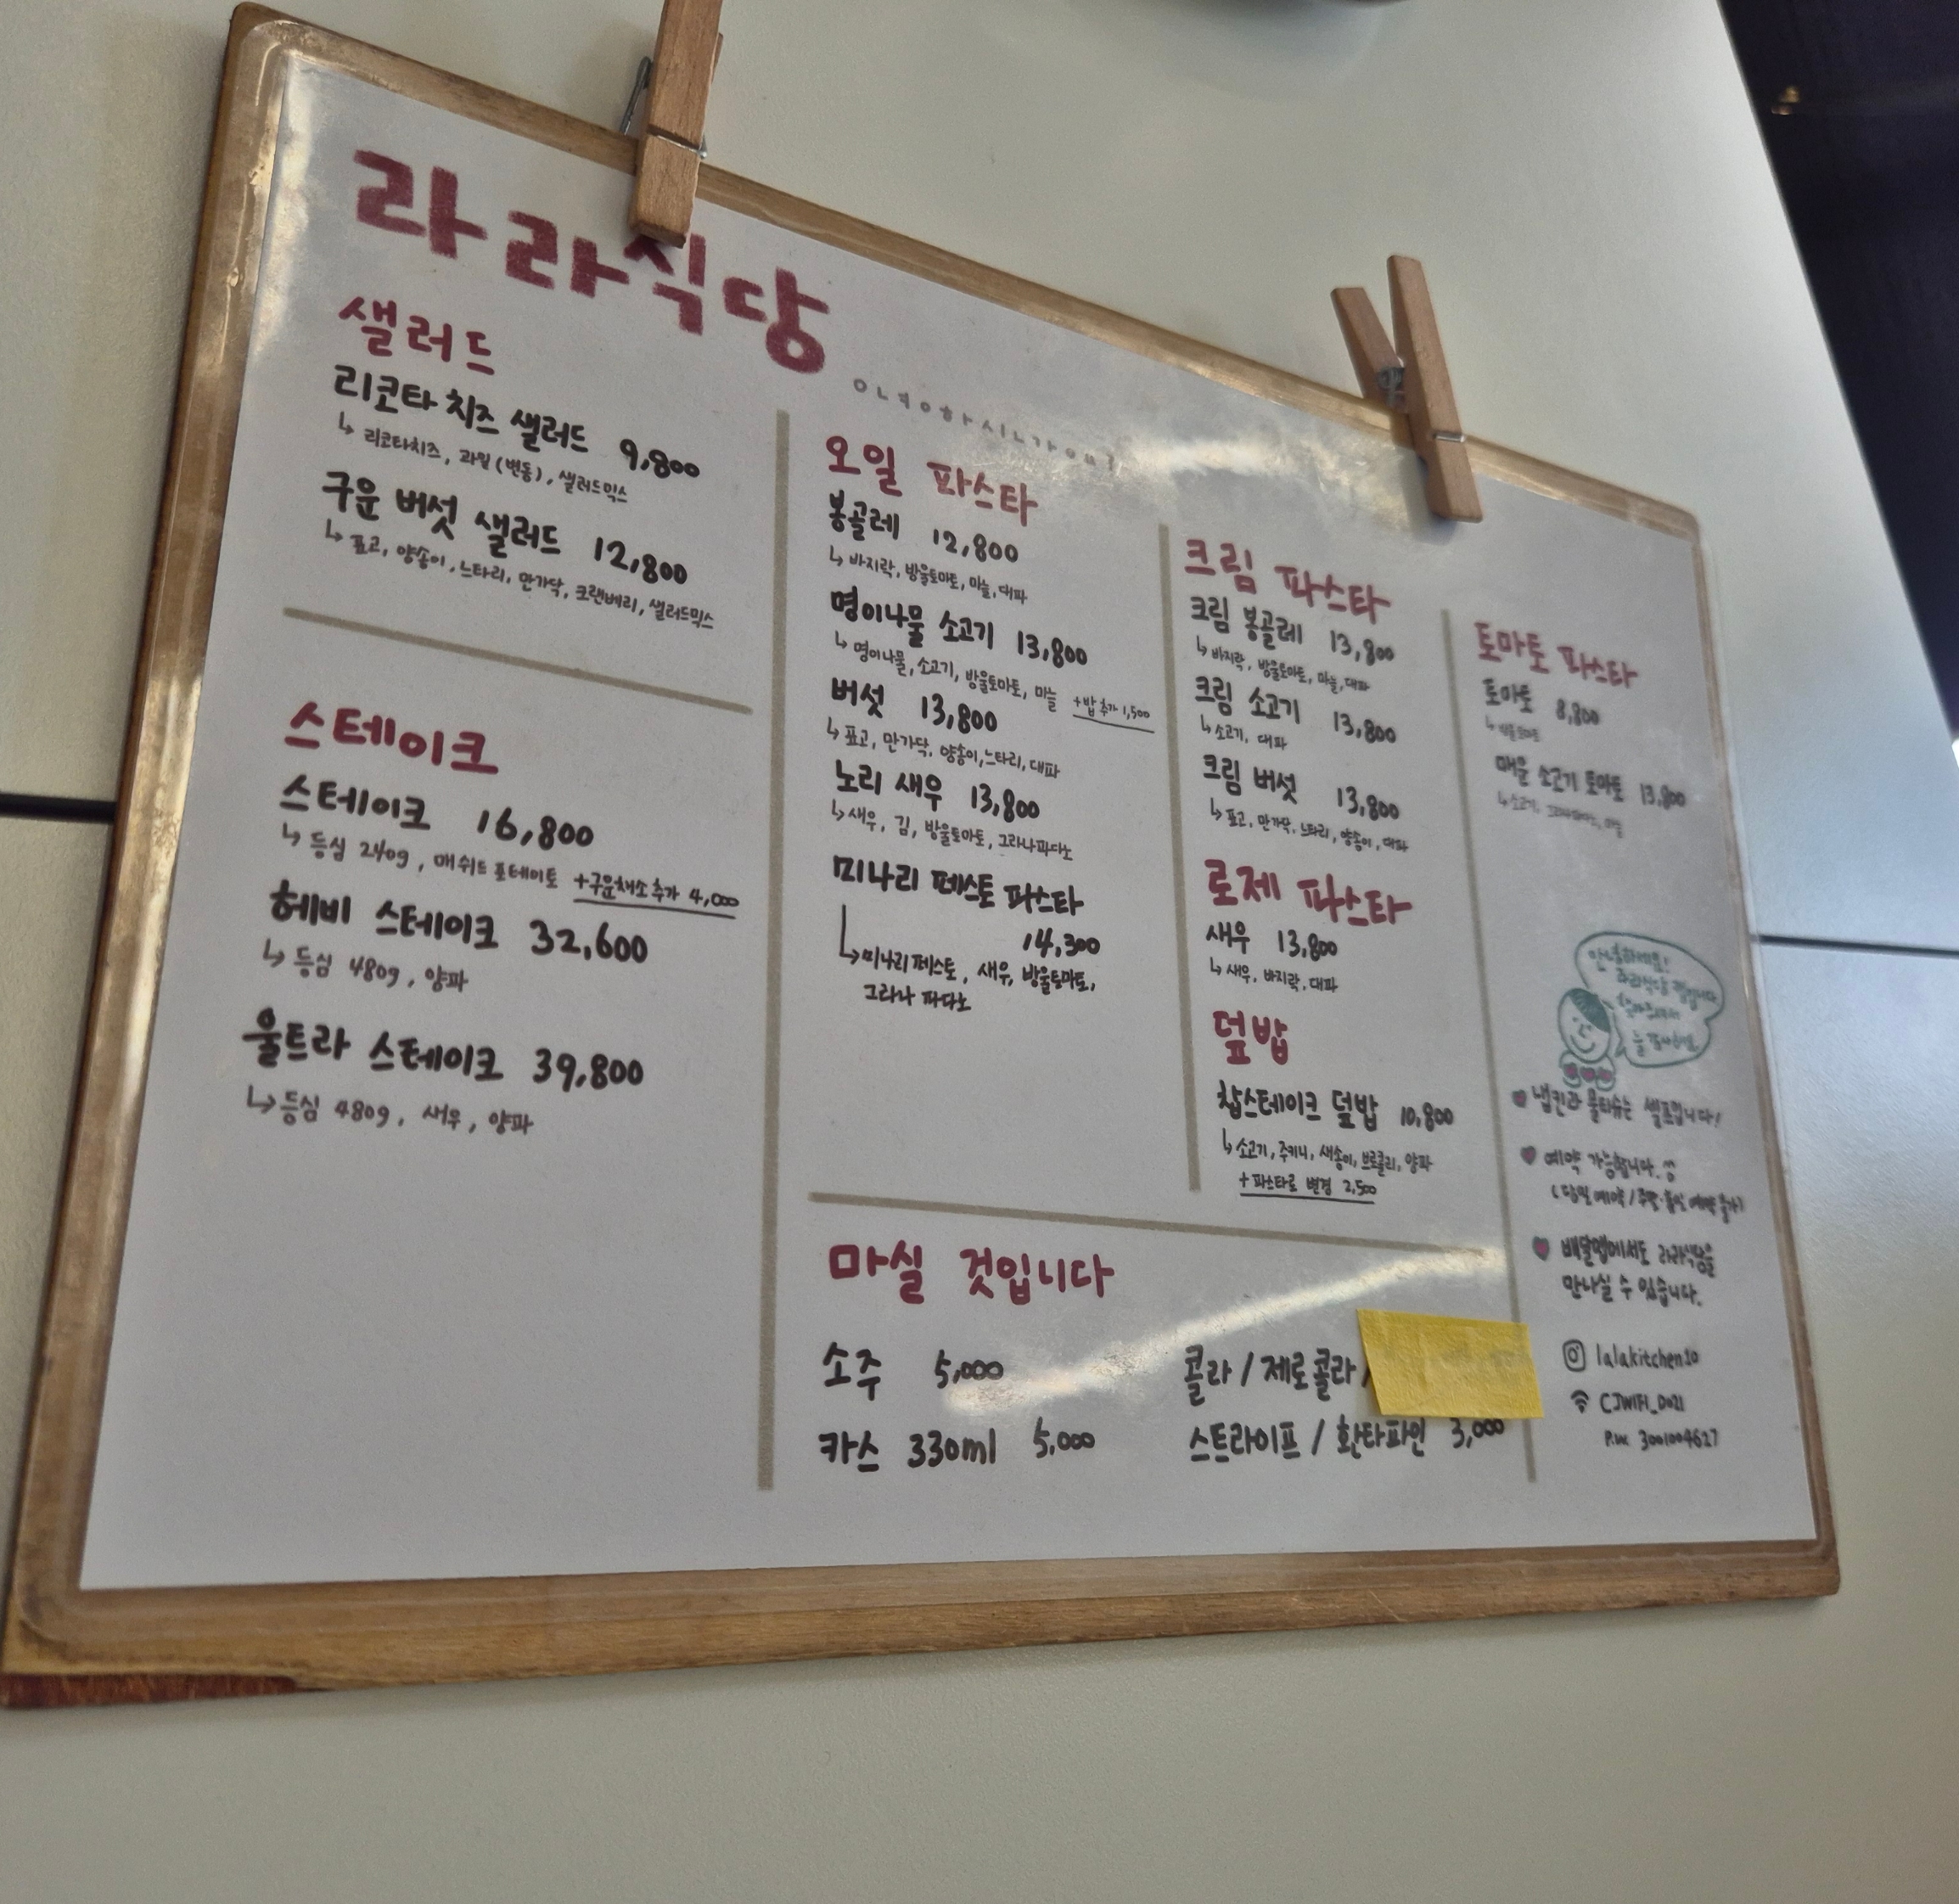 라라식당
샐러드
리코타 치즈 샐러드 9,800
↳ 리코타치즈, 과일(변동), 샐러드믹스
구운 버섯 샐러드 12,800
↳ 표고, 양송이, 느타리, 만가닥, 크랜베리, 샐러드믹스
스테이크
스테이크 16,800
↳ 등심 240g, 매쉬드 포테이토 +구운채소 추가 4,000
헤비 스테이크 32,600
↳ 등심 480g, 양파
울트라 스테이크 39,800
↳ 등심 480g, 새우, 양파
오일 파스타
봉골레 12,800
↳ 바지락, 방울토마토, 마늘, 대파
명이나물 소고기 13,800
↳ 명이나물, 소고기, 방울토마토, 마늘 +밥 추가 1,500
버섯 13,800
↳ 표고, 만가닥, 양송이, 느타리, 대파
노리 새우 13,800
↳ 새우, 김, 방울토마토, 그라나파다노
미나리 페스토 파스타
14,300
↳ 미나리페스토, 새우, 방울토마토,
그라나 파다노
크림 파스타
크림 봉골레 13,800
↳ 바지락, 방울토마토, 마늘, 대파
크림 소고기 13,800
↳ 소고기, 대파
크림 버섯 13,800
↳ 표고, 만가닥, 느타리, 양송이, 대파
로제 파스타
새우 13,800
↳ 새우, 바지락, 대파
덮밥
찹스테이크 덮밥 10,800
↳ 소고기, 주키니, 새송이, 브로콜리, 양파
+ 파스타로 변경 2,500
토마토 파스타
토마토 8,800
↳ 방울토마토
매운 소고기 토마토 13,800
마실 것입니다
소주 5,000
카스 330ml 5,000
콜라 / 제로콜라 /
스트라이프 / 환타파인 3,000
안녕하세요!
냅킨과 물티슈는 셀프입니다!
예약 가능합니다.
(당일 예약 / 주말·휴일 예약 불가)
배달앱에서도 라라식당을
만나실 수 있습니다.
lalakitchen10
CJWIFI_D021
P.w 3001004627